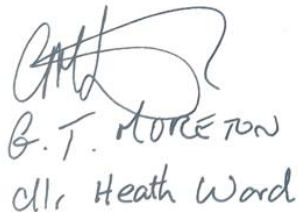 G. T. MORETON
Cllr Heath Ward